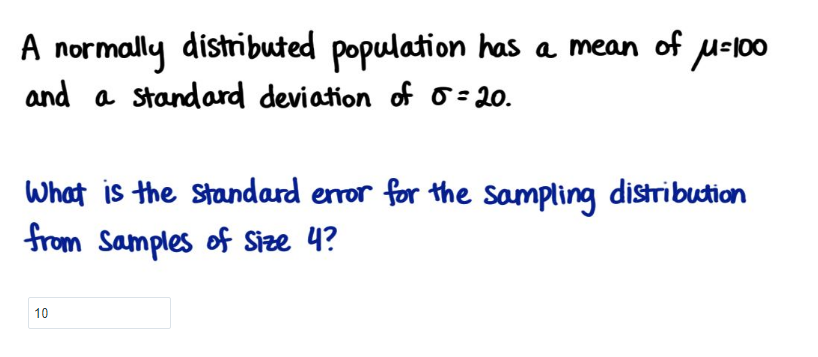 A normally distributed population has a mean of μ=100
and a standard deviation of σ=20.
What is the standard error for the sampling distribution
from samples of size 4?
10